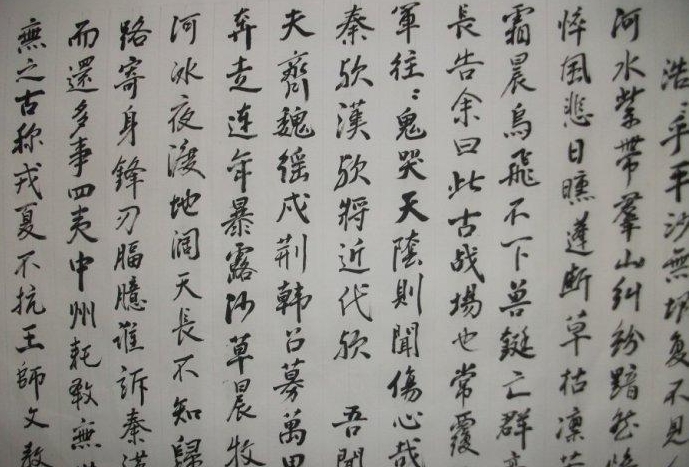 浩〻乎平沙無垠夐不見
河水縈帶羣山糾紛黯然慘
悴風悲日曛蓬斷草枯凜若
霜晨鳥飛不下兽鋌亡群亭
長告余曰此古战場也常覆
軍往〻鬼哭天陰則聞傷心哉
秦欤漢欤將近代欤 吾聞
夫齊魏徭戍荆韓召募萬里
奔走連年暴露沙草晨牧
河冰夜渡地阔天長不知歸
路寄身鋒刃腷臆誰訴秦漢
而還多事四夷中州耗斁無世
無之古称戎夏不抗王師文教